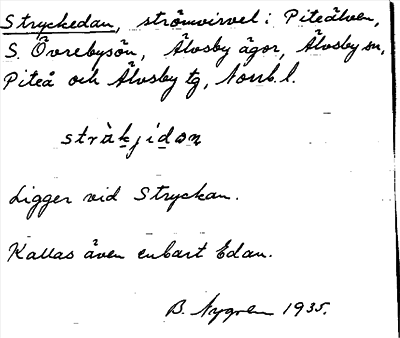 Stryckedan, strömvirvel i Piteälven,
S. Övrebysön, Älvsby ägor, Älvsby sn,
Piteå och Älvsby tg, Norrb. l.
stràkjidan
Ligger vid Stryckan.
Kallas även enbart Edan.
B. Nygren 1935.